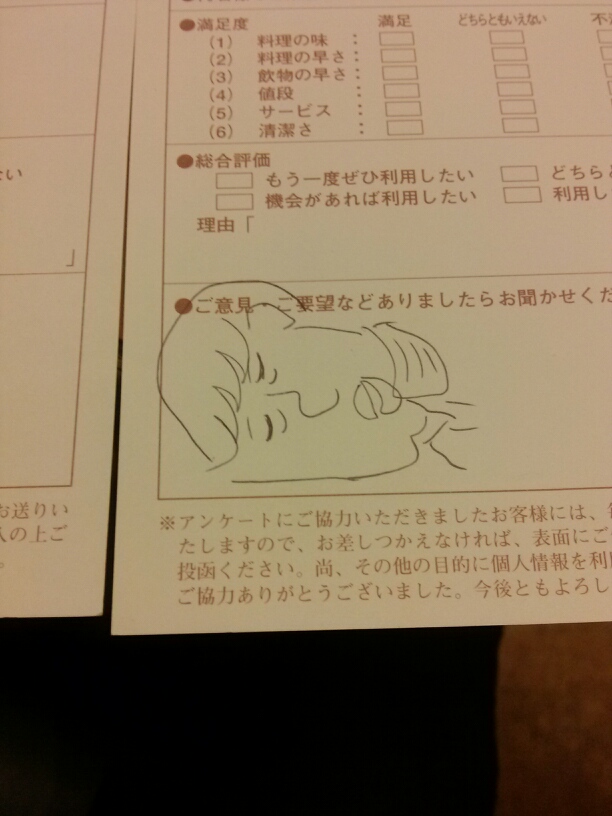 い
」
お送りい
入の上ご
。
●満足度 満足 どちらともいえない 不
(1) 料理の味 :
(2) 料理の早さ:
(3) 飲物の早さ:
(4) 値段 :
(5) サービス :
(6) 清潔さ :
●総合評価
もう一度ぜひ利用したい どちら
機会があれば利用したい 利用し
理由「
●ご意見・ご要望などありましたらお聞かせくだ
※アンケートにご協力いただきましたお客様には、
たしますので、お差しつかえなければ、表面にご
投函ください。尚、その他の目的に個人情報を利
ご協力ありがとうございました。今後ともよろし